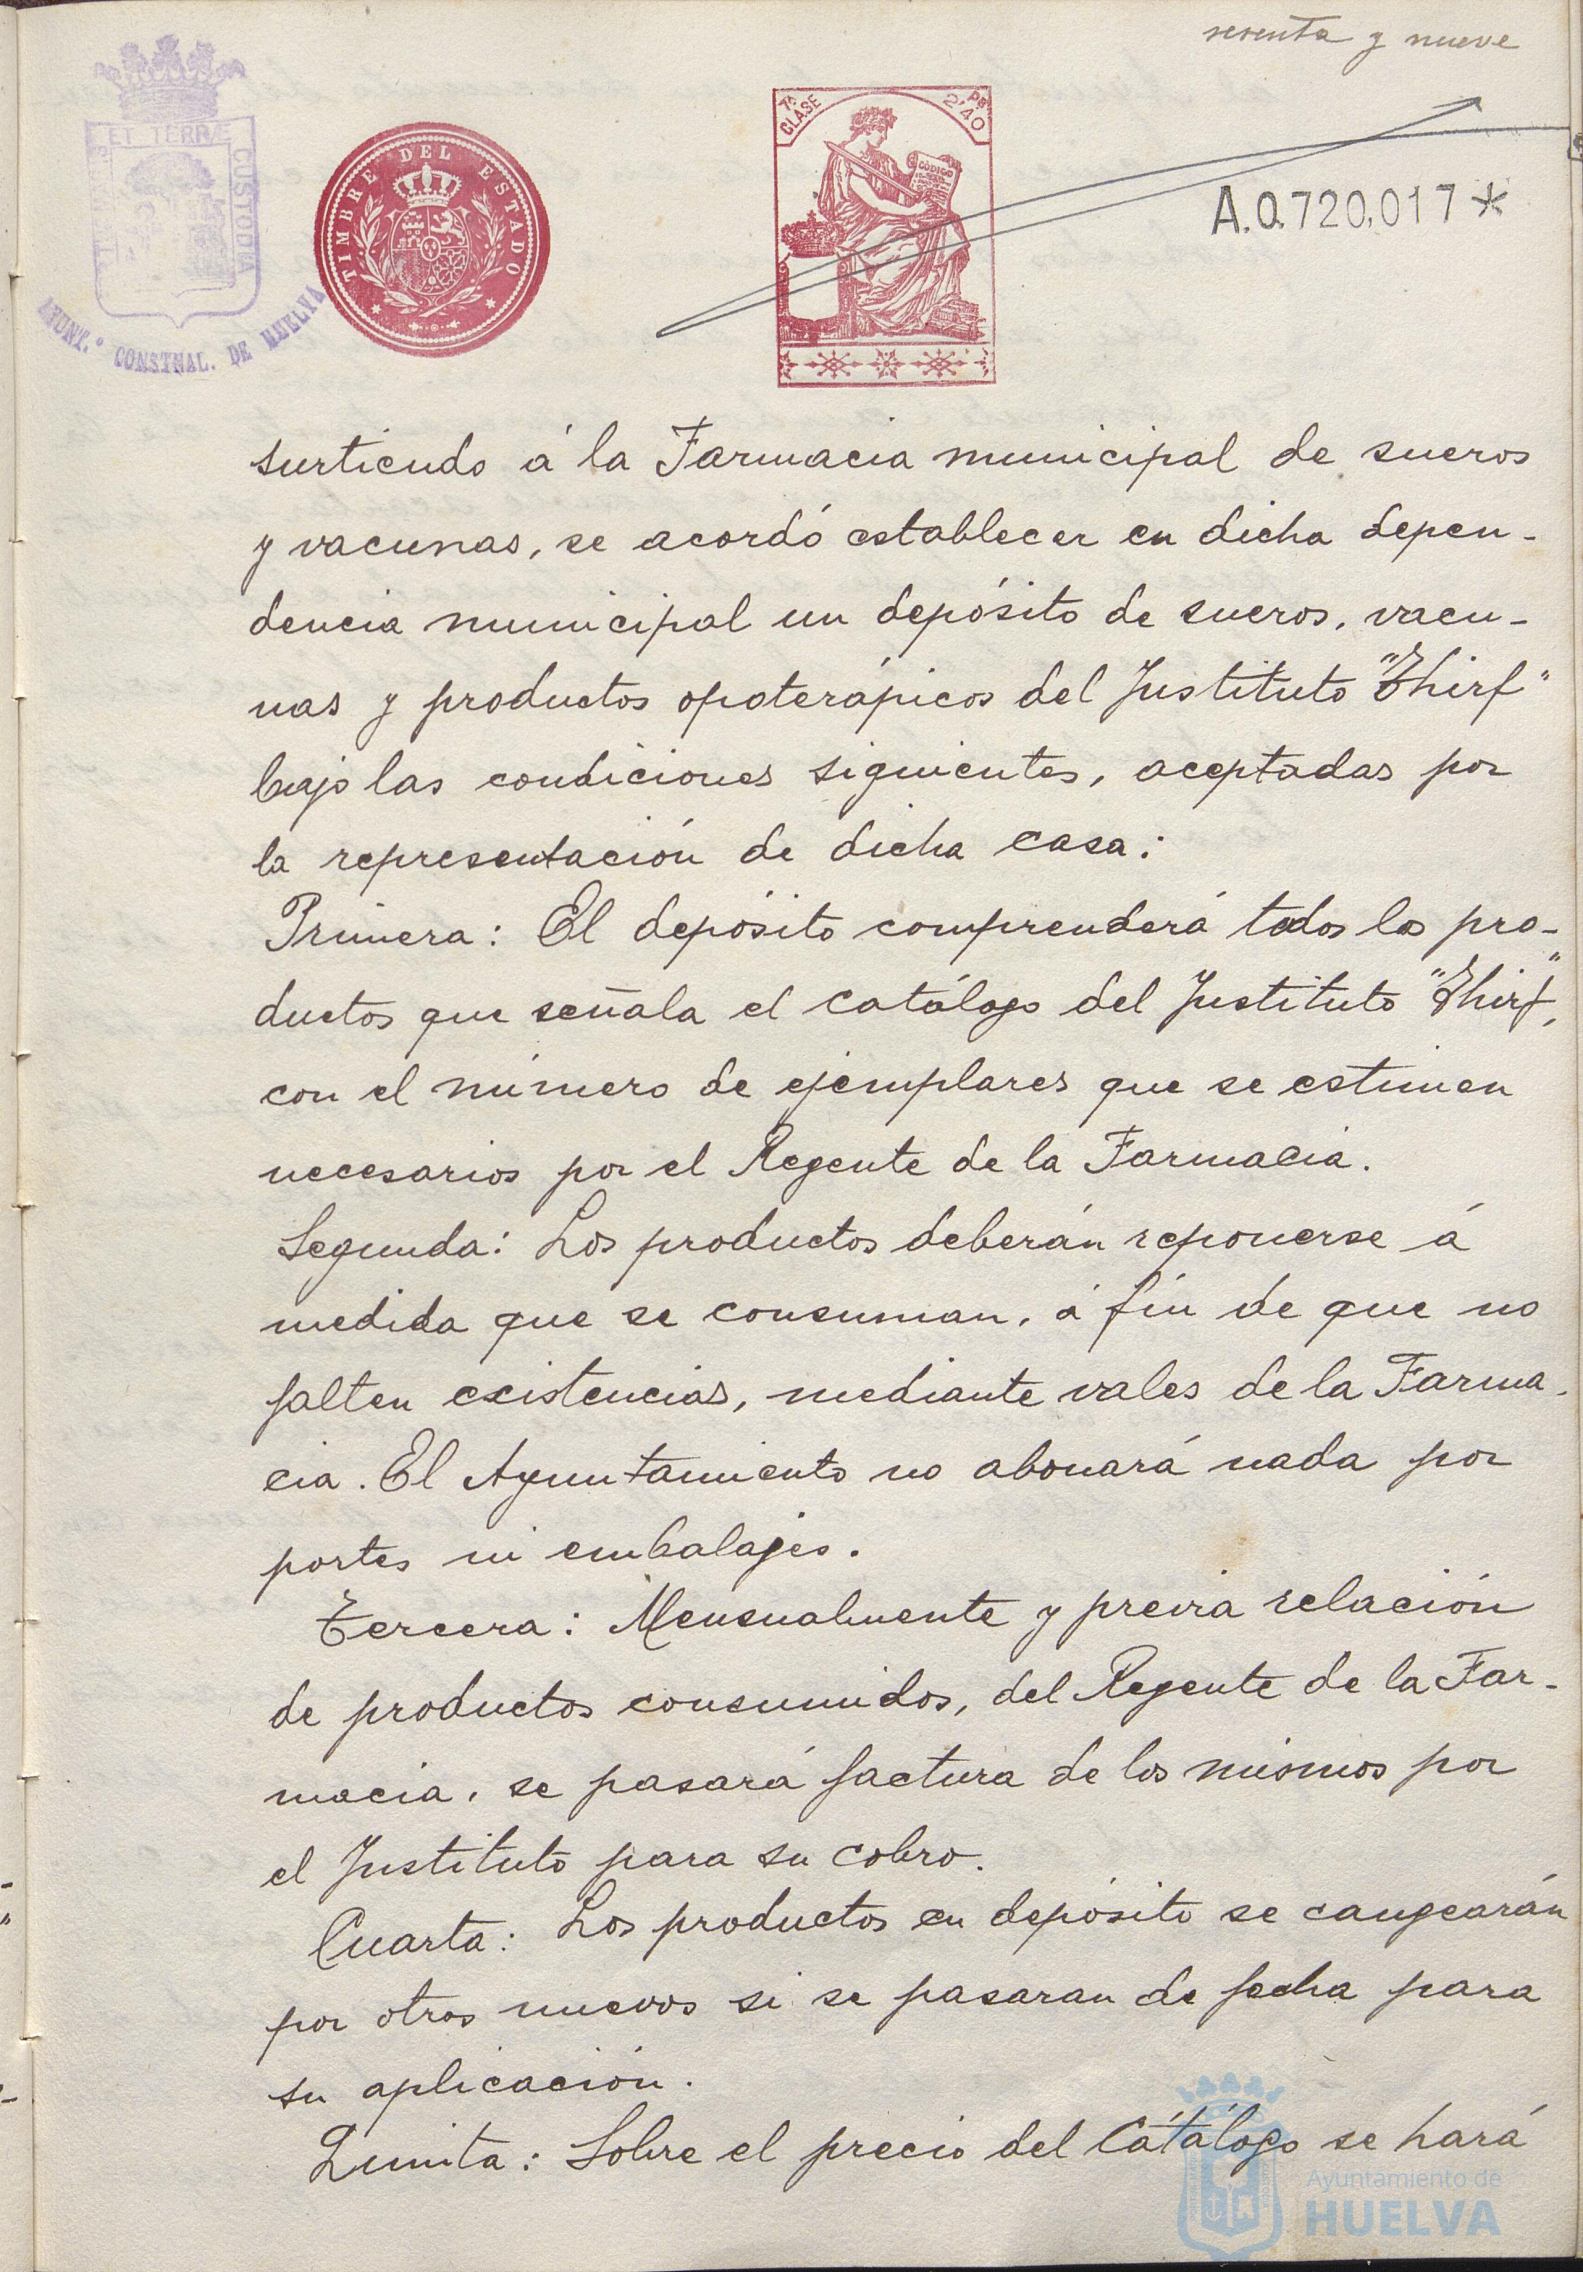 sesenta y nueve
ET TERRÆ CUSTODIA
AYUNT.º CONSTNAL. DE HUELVA
TIMBRE DEL ESTADO
7ª CLASE
2'40 PS
CÓDIGO
A.0.720,017*
surtiendo á la Farmacia municipal de sueros
y vacunas, se acordó establecer en dicha depen-
dencia municipal un depósito de sueros, vacu-
nas y productos opoterápicos del Instituto "Thirf"
bajo las condiciones siguientes, aceptadas por
la representación de dicha casa:
Primera: El depósito comprenderá todos los pro-
ductos que señala el catálogo del Instituto "Thirf",
con el número de ejemplares que se estimen
necesarios por el Regente de la Farmacia.
Segunda: Los productos deberán reponerse á
medida que se consuman, á fin de que no
falten existencias, mediante vales de la Farma-
cia. El Ayuntamiento no abonará nada por
portes ni embalajes.
Tercera: Mensualmente y previa relación
de productos consumidos, del Regente de la Far-
macia, se pasará factura de los mismos por
el Instituto para su cobro.
Cuarta: Los productos en depósito se cangearán
por otros nuevos si se pasaran de fecha para
su aplicación.
Quinta: Sobre el precio del Catálogo se hará
Ayuntamiento de
HUELVA